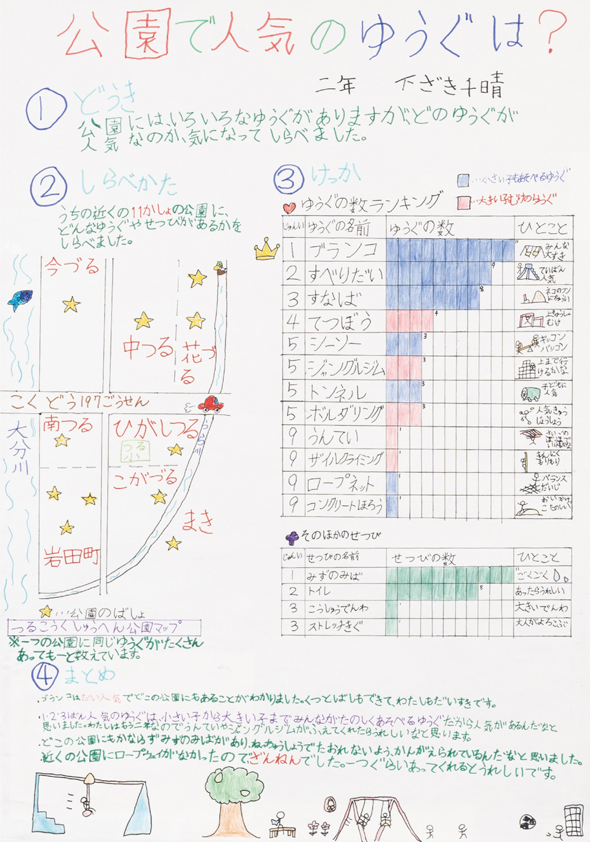 公園で人気のゆうぐは?
二年 下ざき千晴
① どうき
公園には、いろいろなゆうぐがありますが、どのゆうぐが
人気なのか、気になってしらべました。
② しらべかた
うちの近くの11かしょの公園に、
どんなゆうぐやせつびがあるかを
しらべました。
今づる
中つる
花づる
こくどう197ごうせん
大分川
南つる
ひがしつる
つるこう
こがづる
まき
岩田町
…公園のばしょ
つるこうくしゅうへん公園マップ
※一つの公園に同じゆうぐがたくさん
あっても一と数えています。
③ けっか
…小さい子もあそべるゆうぐ
…大きい子むけのゆうぐ
ゆうぐの数ランキング
じゅんい ゆうぐの名前 ゆうぐの数 ひとこと
1 ブランコ みんな大すき
2 すべりだい 9 ていばん人気
3 すなば 8
4 てつぼう 4
5 シーソー 3 ギッコンバッコン
5 ジャングルジム 3 上まで行けるかな
5 トンネル 3 子どもに人気
5 ボルダリング 3
9 うんてい 1
9 ザイルクライミング 1
9 ロープネット 1 バランスだいじ
9 コンクリートほろう 1
そのほかのせつび
じゅんい せつびの名前 せつびの数 ひとこと
1 みずのみば ごくごく
2 トイレ あったらうれしい
3 こうしゅうでんわ 大きいでんわ
3 ストレッチきぐ 大人がよろこぶ
④ まとめ
・ブランコは大人気でどこの公園にもあることがわかりました。くつとばしもできて、わたしもだいすきです。
・1・2・3ばん人気のゆうぐは、小さい子から大きい子までみんながたのしくあそべるゆうぐだから人気があるんだなと
思いました。わたしはもう二年なのでうんていやジャングルジムがふえてくれたらうれしいなと思います。
・どこの公園にもかならずみずのみばがあり、ねっちゅうしょうでたおれないよう、かんがえられているんだなと思いました。
近くの公園にロープウェイがなかったのでざんねんでした。一つぐらいあってくれるとうれしいです。